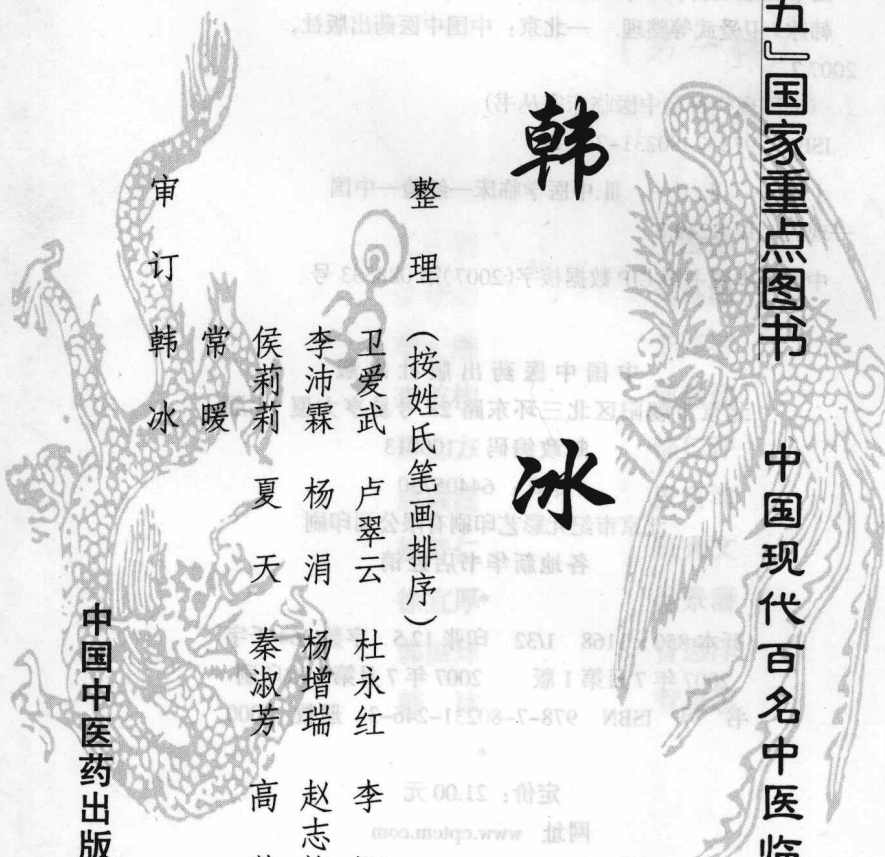 五』国家重点图书 中国现代百名中医临
韩冰
整理(按姓氏笔画排序)
卫爱武 卢翠云 杜永红 李
李沛霖 杨涓 杨增瑞 赵志
侯莉莉 夏天 秦淑芳 高
常暖
审订 韩冰
中国中医药出版